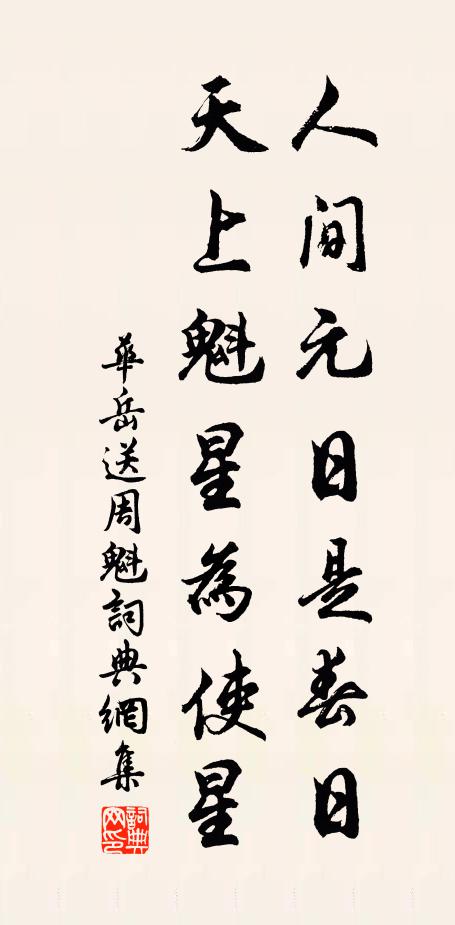 人間元日是春日
天上魁星為使星
華岳送周魁詞典網集
詞典网印